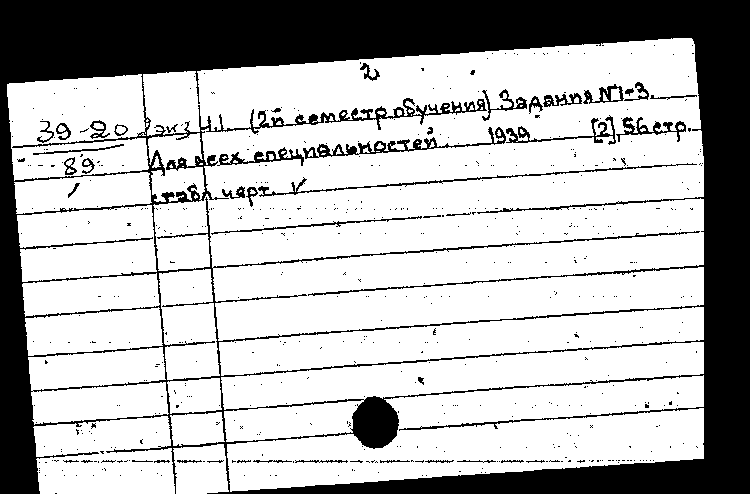 2
39-20 2 экз Ч.1. (2й семестр обучения) Задания №1-3.
89 Для всех специальностей. 1939. [2], 56 стр.
с табл. черт. ✓